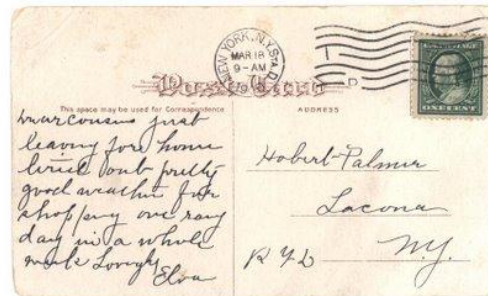 NEW YORK, N.Y. STA. D
MAR 18
9-AM
D
Post Card
This space may be used for Correspondence
ADDRESS
ONE CENT
Dear cousin just
leaving for home
tired out pretty
good weather for
shopping one rany
day in a whole
week Lovingly
Elva
Hobert Palmer
Lacona
R F D
N.Y.